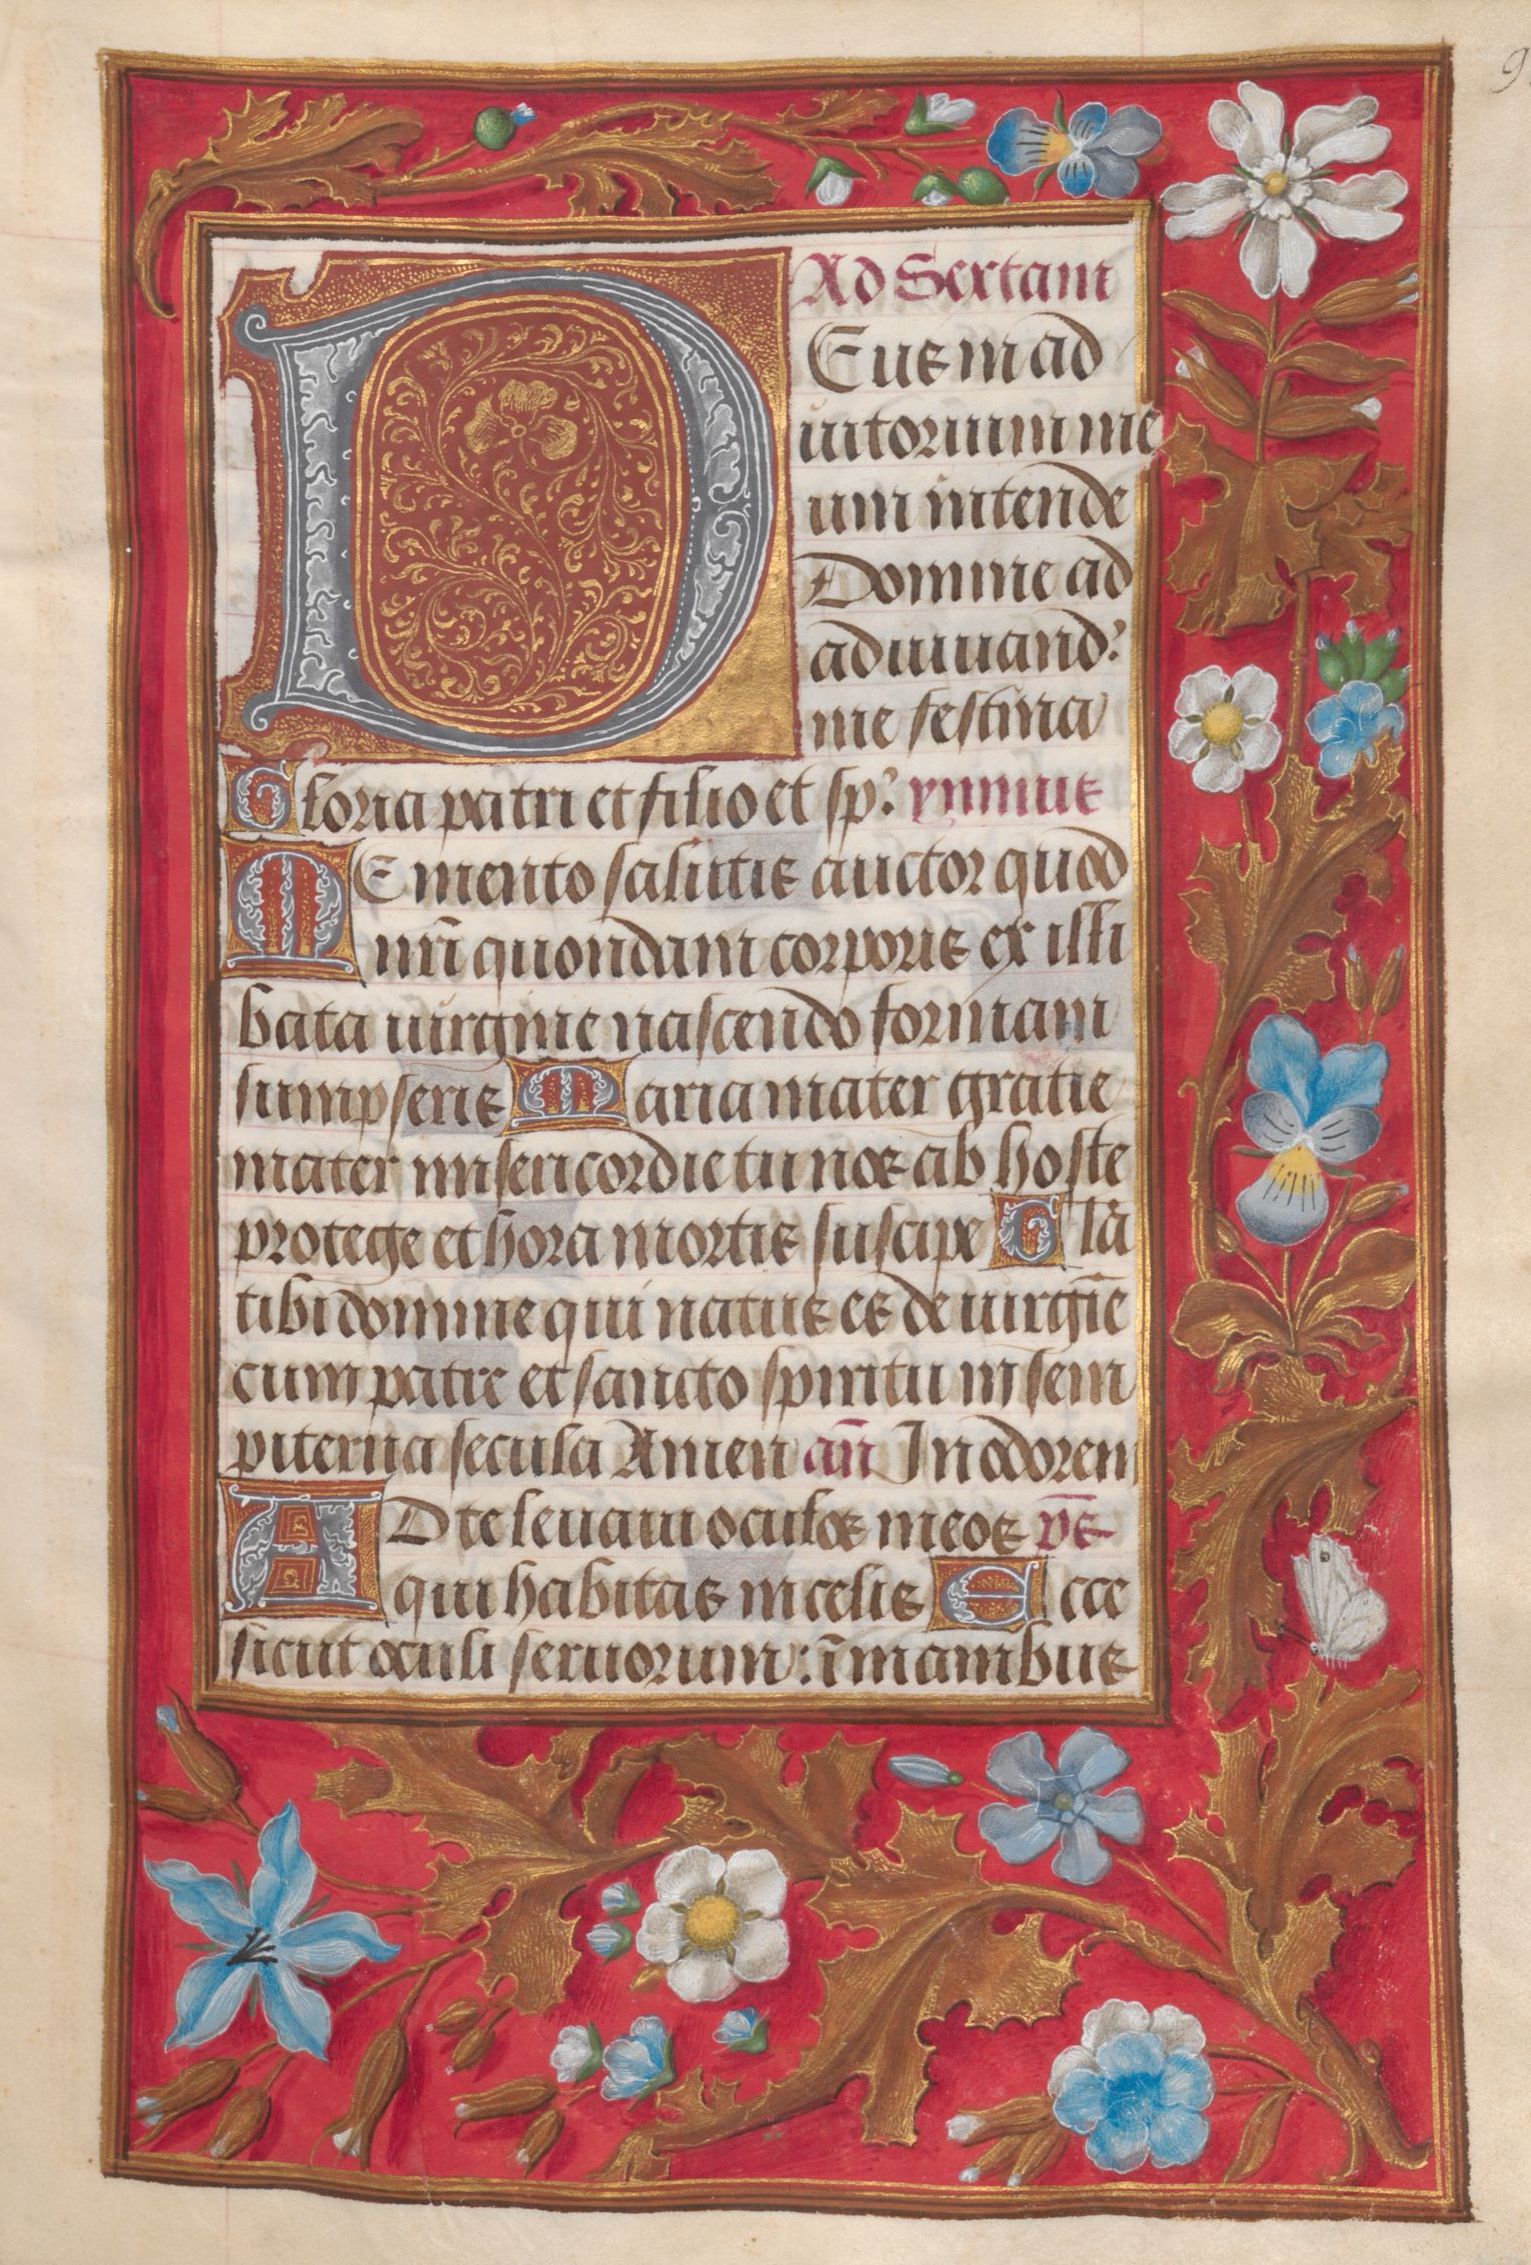 9
Ad Sextam
DEus in ad
iutorium me
um intende
Domine ad
adiuuand᷒
me festina
Gloria patri et filio et sp᷒ ymnus
MEmento salutis auctor quod
nr̄i quondam corporis ex illi
bata uirgine nascendo formam
sumpseris Maria mater gratie
mater misericordie tu nos ab hoste
protege et hora mortis suscipe Glā
tibi domine qui natus es de uirgīe
cum patre et sancto spiritu in sem
piterna secula Amen an̄ In odorem
AD te leuaui oculos meos ps̄
qui habitas in celis Ecce
sicut oculi seruorum: ī manibus